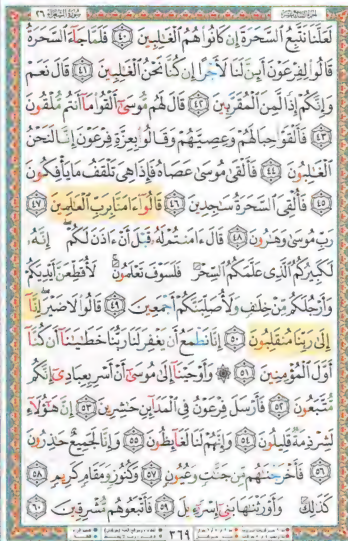 لَعَلَّنَا نَتَّبِعُ السَّحَرَةَ إِن كَانُوا هُمُ الْغَالِبِينَ ٤٠ فَلَمَّا جَاءَ السَّحَرَةُ
قَالُوا لِفِرْعَوْنَ أَئِنَّ لَنَا لَأَجْرًا إِن كُنَّا نَحْنُ الْغَالِبِينَ ٤١ قَالَ نَعَمْ
وَإِنَّكُمْ إِذًا لَّمِنَ الْمُقَرَّبِينَ ٤٢ قَالَ لَهُم مُّوسَىٰ أَلْقُوا مَا أَنتُم مُّلْقُونَ
٤٣ فَأَلْقَوْا حِبَالَهُمْ وَعِصِيَّهُمْ وَقَالُوا بِعِزَّةِ فِرْعَوْنَ إِنَّا لَنَحْنُ
الْغَالِبُونَ ٤٤ فَأَلْقَىٰ مُوسَىٰ عَصَاهُ فَإِذَا هِيَ تَلْقَفُ مَا يَأْفِكُونَ
٤٥ فَأُلْقِيَ السَّحَرَةُ سَاجِدِينَ ٤٦ قَالُوا ءَامَنَّا بِرَبِّ الْعَالَمِينَ ٤٧
رَبِّ مُوسَىٰ وَهَارُونَ ٤٨ قَالَ ءَامَنتُمْ لَهُ قَبْلَ أَنْ ءَاذَنَ لَكُمْ إِنَّهُ
لَكَبِيرُكُمُ الَّذِي عَلَّمَكُمُ السِّحْرَ فَلَسَوْفَ تَعْلَمُونَ لَأُقَطِّعَنَّ أَيْدِيَكُمْ
وَأَرْجُلَكُم مِّنْ خِلَافٍ وَلَأُصَلِّبَنَّكُمْ أَجْمَعِينَ ٤٩ قَالُوا لَا ضَيْرَ إِنَّا
إِلَىٰ رَبِّنَا مُنقَلِبُونَ ٥٠ إِنَّا نَطْمَعُ أَن يَغْفِرَ لَنَا رَبُّنَا خَطَايَانَا أَن كُنَّا
أَوَّلَ الْمُؤْمِنِينَ ٥١ ۞ وَأَوْحَيْنَا إِلَىٰ مُوسَىٰ أَنْ أَسْرِ بِعِبَادِي إِنَّكُم
مُّتَّبَعُونَ ٥٢ فَأَرْسَلَ فِرْعَوْنُ فِي الْمَدَائِنِ حَاشِرِينَ ٥٣ إِنَّ هَٰؤُلَاءِ
لَشِرْذِمَةٌ قَلِيلُونَ ٥٤ وَإِنَّهُمْ لَنَا لَغَائِظُونَ ٥٥ وَإِنَّا لَجَمِيعٌ حَاذِرُونَ
٥٦ فَأَخْرَجْنَاهُم مِّن جَنَّاتٍ وَعُيُونٍ ٥٧ وَكُنُوزٍ وَمَقَامٍ كَرِيمٍ ٥٨
كَذَٰلِكَ وَأَوْرَثْنَاهَا بَنِي إِسْرَائِيلَ ٥٩ فَأَتْبَعُوهُم مُّشْرِقِينَ ٦٠
٣٦٩